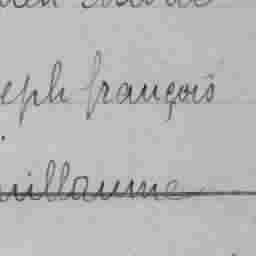 eph françois
uillaume